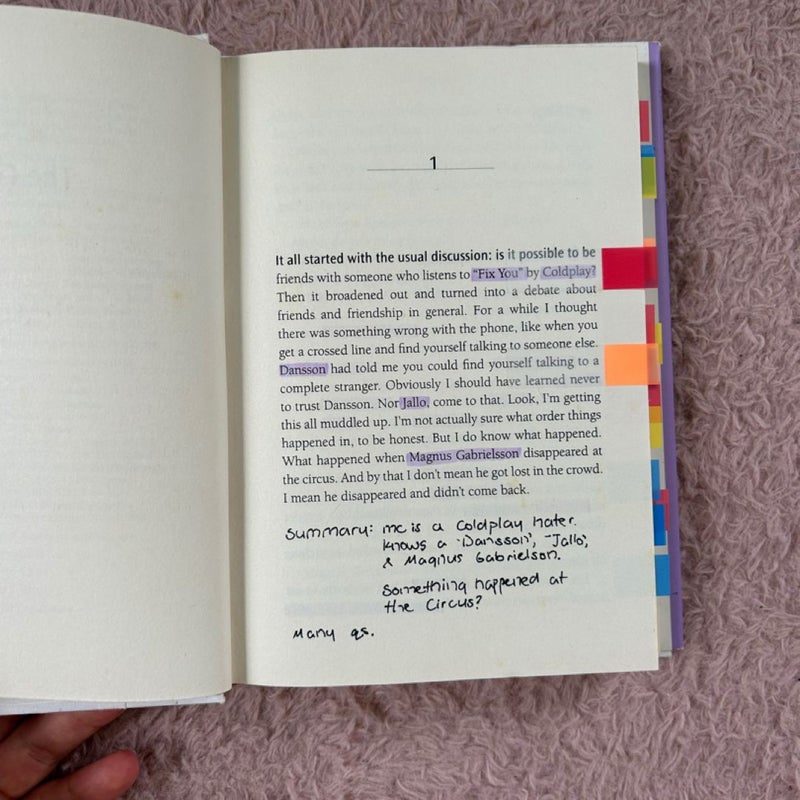 1
It all started with the usual discussion: is it possible to be
friends with someone who listens to "Fix You" by Coldplay?
Then it broadened out and turned into a debate about
friends and friendship in general. For a while I thought
there was something wrong with the phone, like when you
get a crossed line and find yourself talking to someone else.
Dansson had told me you could find yourself talking to a
complete stranger. Obviously I should have learned never
to trust Dansson. Nor Jallo, come to that. Look, I'm getting
this all muddled up. I'm not actually sure what order things
happened in, to be honest. But I do know what happened.
What happened when Magnus Gabrielsson disappeared at
the circus. And by that I don't mean he got lost in the crowd.
I mean he disappeared and didn't come back.
Summary: mc is a Coldplay hater.
Knows a 'Dansson', 'Jallo',
& Magnus Gabrielson.
Something happened at
the Circus?
Many qs.